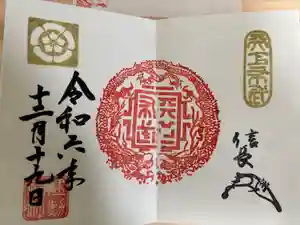 天下布武
信長
天下布武
令和六年
十二月十九日